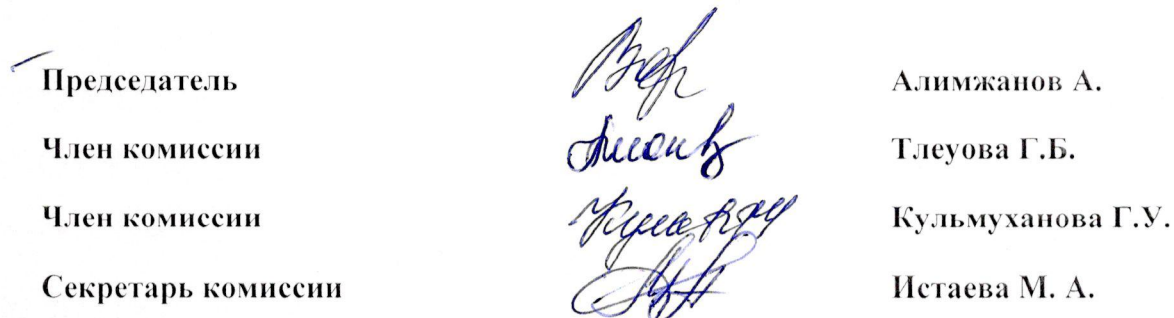 Председатель Алимжанов А.
Член комиссии Тлеуова Г.Б.
Член комиссии Кульмуханова Г.У.
Секретарь комиссии Истаева М. А.